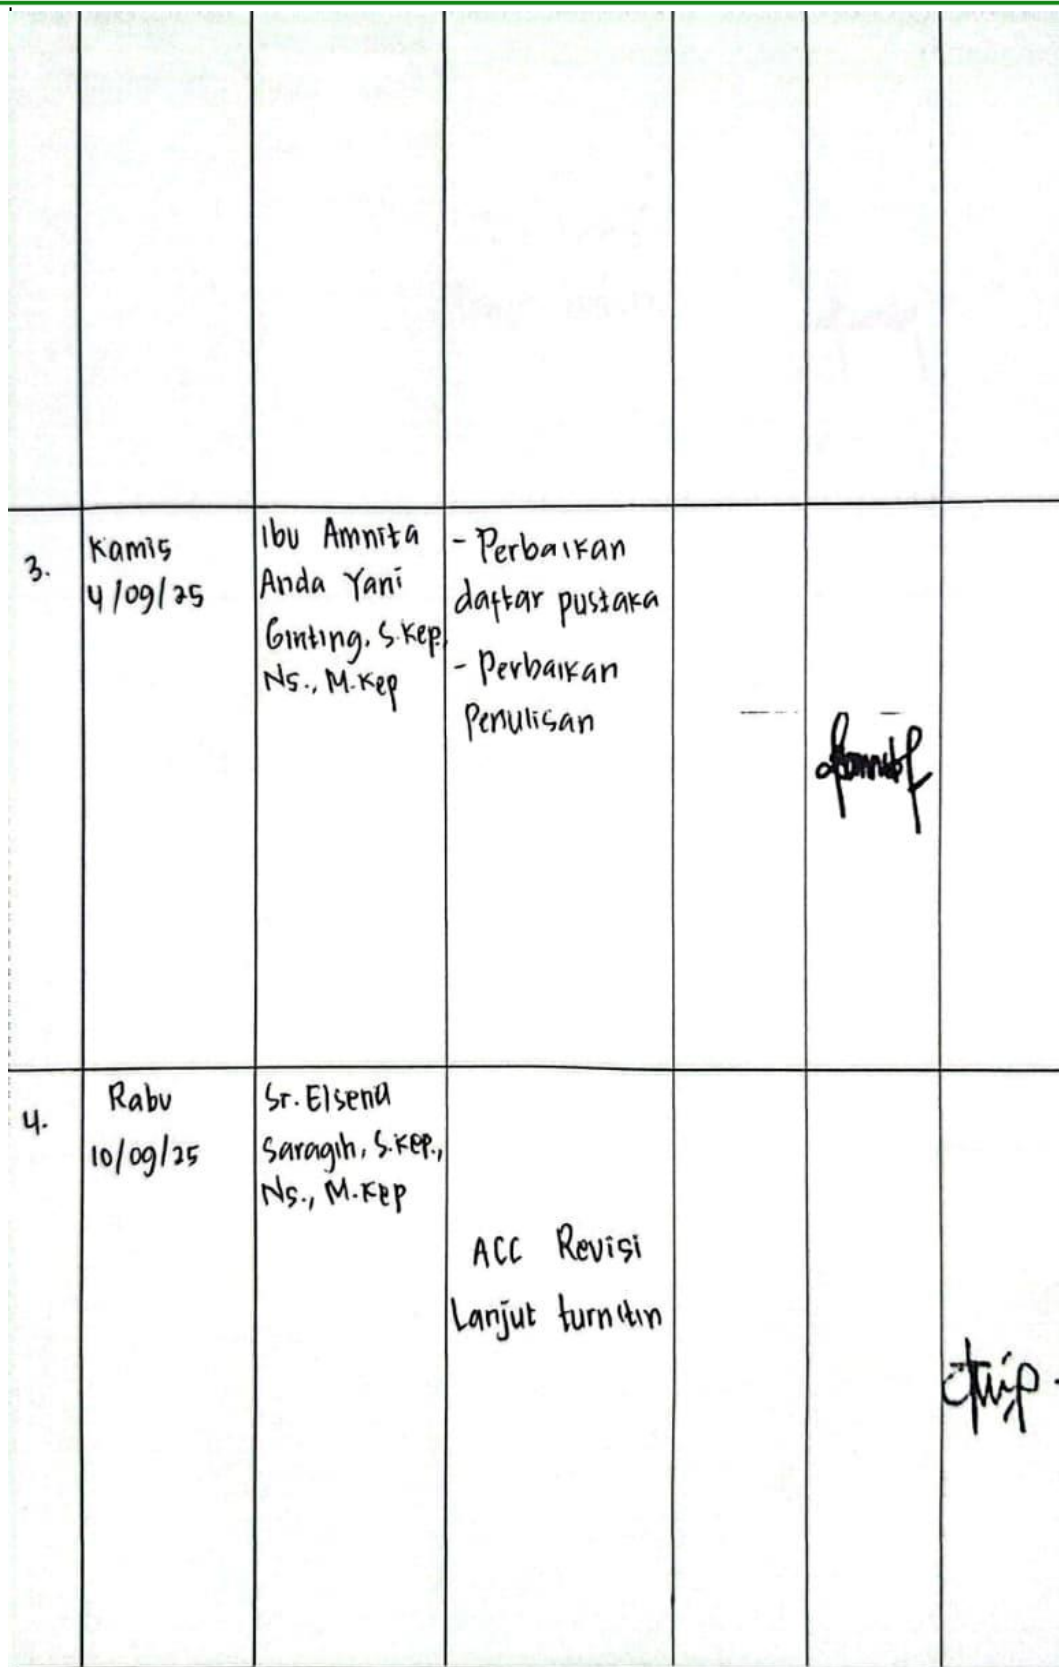 3.
Kamis
4/09/25
Ibu Amnita
Anda Yani
Ginting, S.Kep.
Ns., M.Kep
- Perbaikan
daftar pustaka
- Perbaikan
Penulisan
4.
Rabu
10/09/25
Sr. Elsena
Saragih, S.Kep.,
Ns., M.Kep
ACC Revisi
Lanjut turnitin